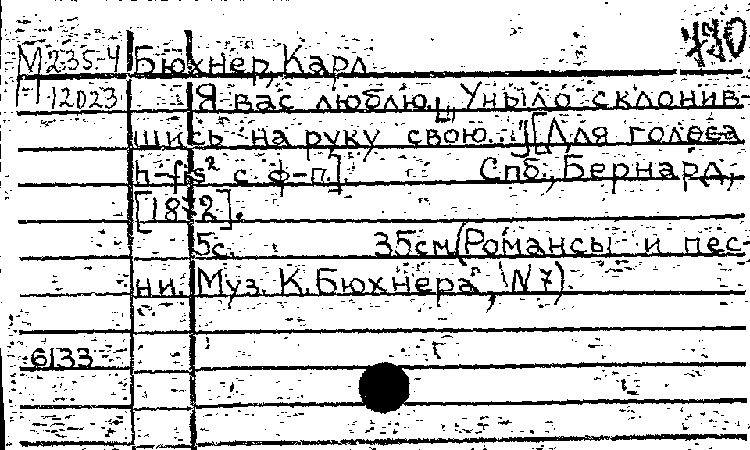 770
М 235-4 Бюхнер, Карл.
П 12023 Я вас люблю. „Уныло склонив-
шись на руку свою..."] [Для голоса
h-fis² с ф-п.]. Спб., Бернард,
[1872].
5с. 35см (Романсы и пес-
ни. Муз. К. Бюхнера, N 7).
6133